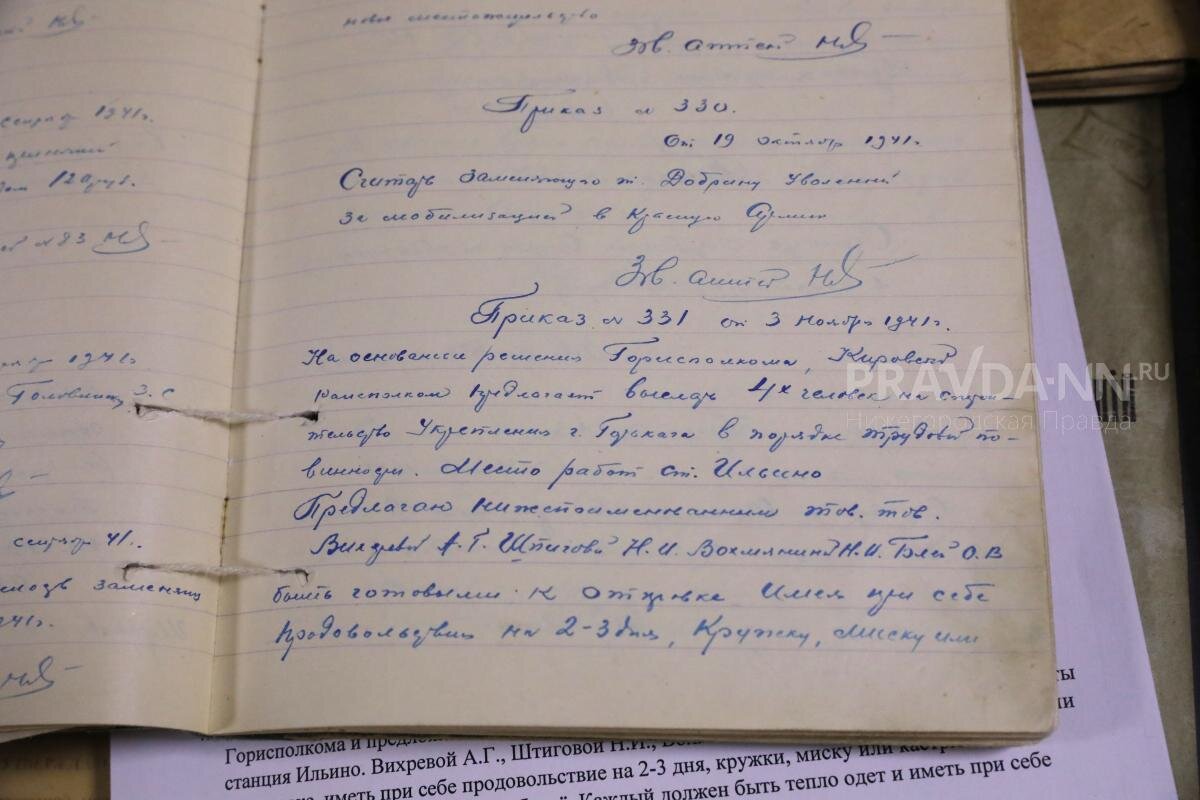 сентяб 1941г.
120 руб.
№ 83 НЯ
1941г.
Головину З. С
сентяб 41г.
заменяющ
1941г.
НЯ
новое местожительство
Зв. аптекой НЯ
Приказ № 330.
От 19 октября 1941г.
Считать заменяющую т. Добрину уволенной
за мобилизацией в Красную Армию
Зв. аптекой НЯ
Приказ № 331 от 3 ноября 1941г.
На основании решения Горисполкома, Кировский
раисполком предлагает выслать 4х человек на строи
тельство Укрепления г. Горького в порядке трудовой по-
винности. Место работ ст. Ильино
Предлагаю нижепоименованным тов. тов.
Вихревой А.Г. Штиговой Н.И. Вохмяниной Н.И. Блей О.В
быть готовыми к отправке Имея при себе
продовольствия на 2-3 дня, Кружку, миску или
PRAVDA-NN.RU
Нижегородская Правда
Горисполкома и предлож
станция Ильино. Вихревой А.Г., Штиговой Н.И.,
иметь при себе продовольствие на 2-3 дня, кружки, миску или кастр
Каждый должен быть тепло одет и иметь при себе